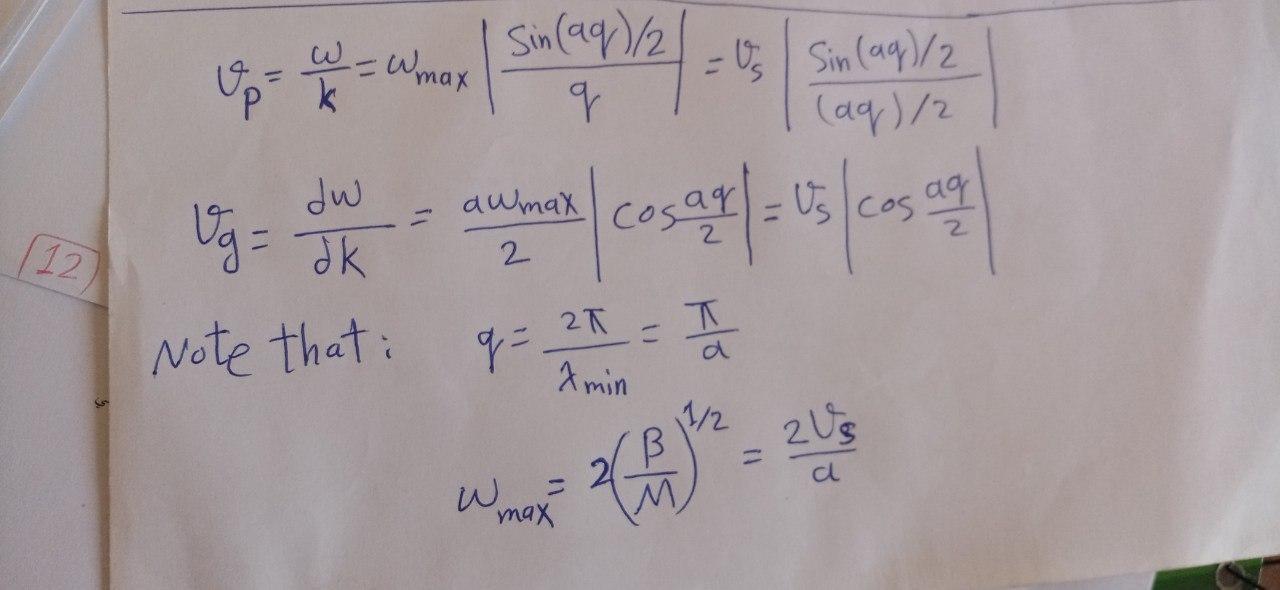 v_p = ω/k = ω_max |sin(aq)/2 / q| = v_s |sin(aq)/2 / (aq)/2|
v_g = dω/dk = aω_max/2 |cos aq/2| = v_s |cos aq/2|
12
Note that: q = 2π/λ_min = π/a
ω_max = 2(β/M)^1/2 = 2v_s/a